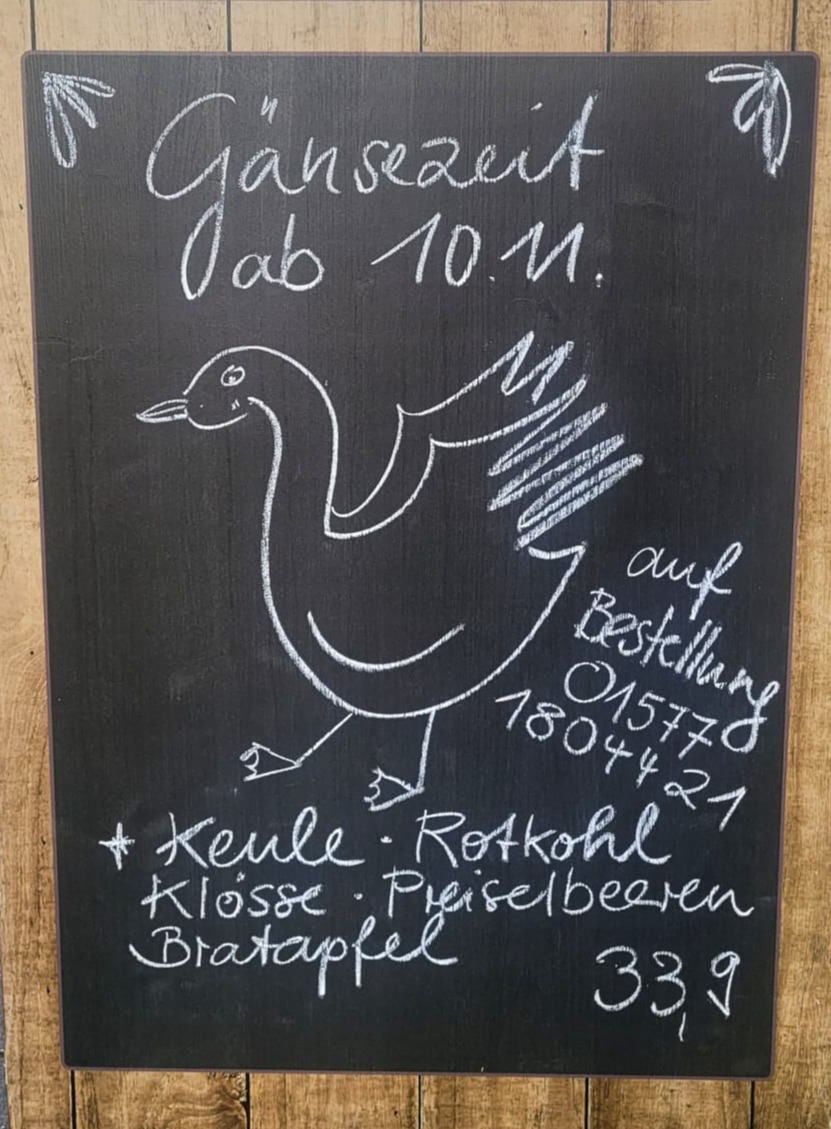 Gänsezeit
ab 10.11.
auf
Bestellung
01577
1804421
+ Keule · Rotkohl
Klösse · Preiselbeeren
Bratapfel
33,9